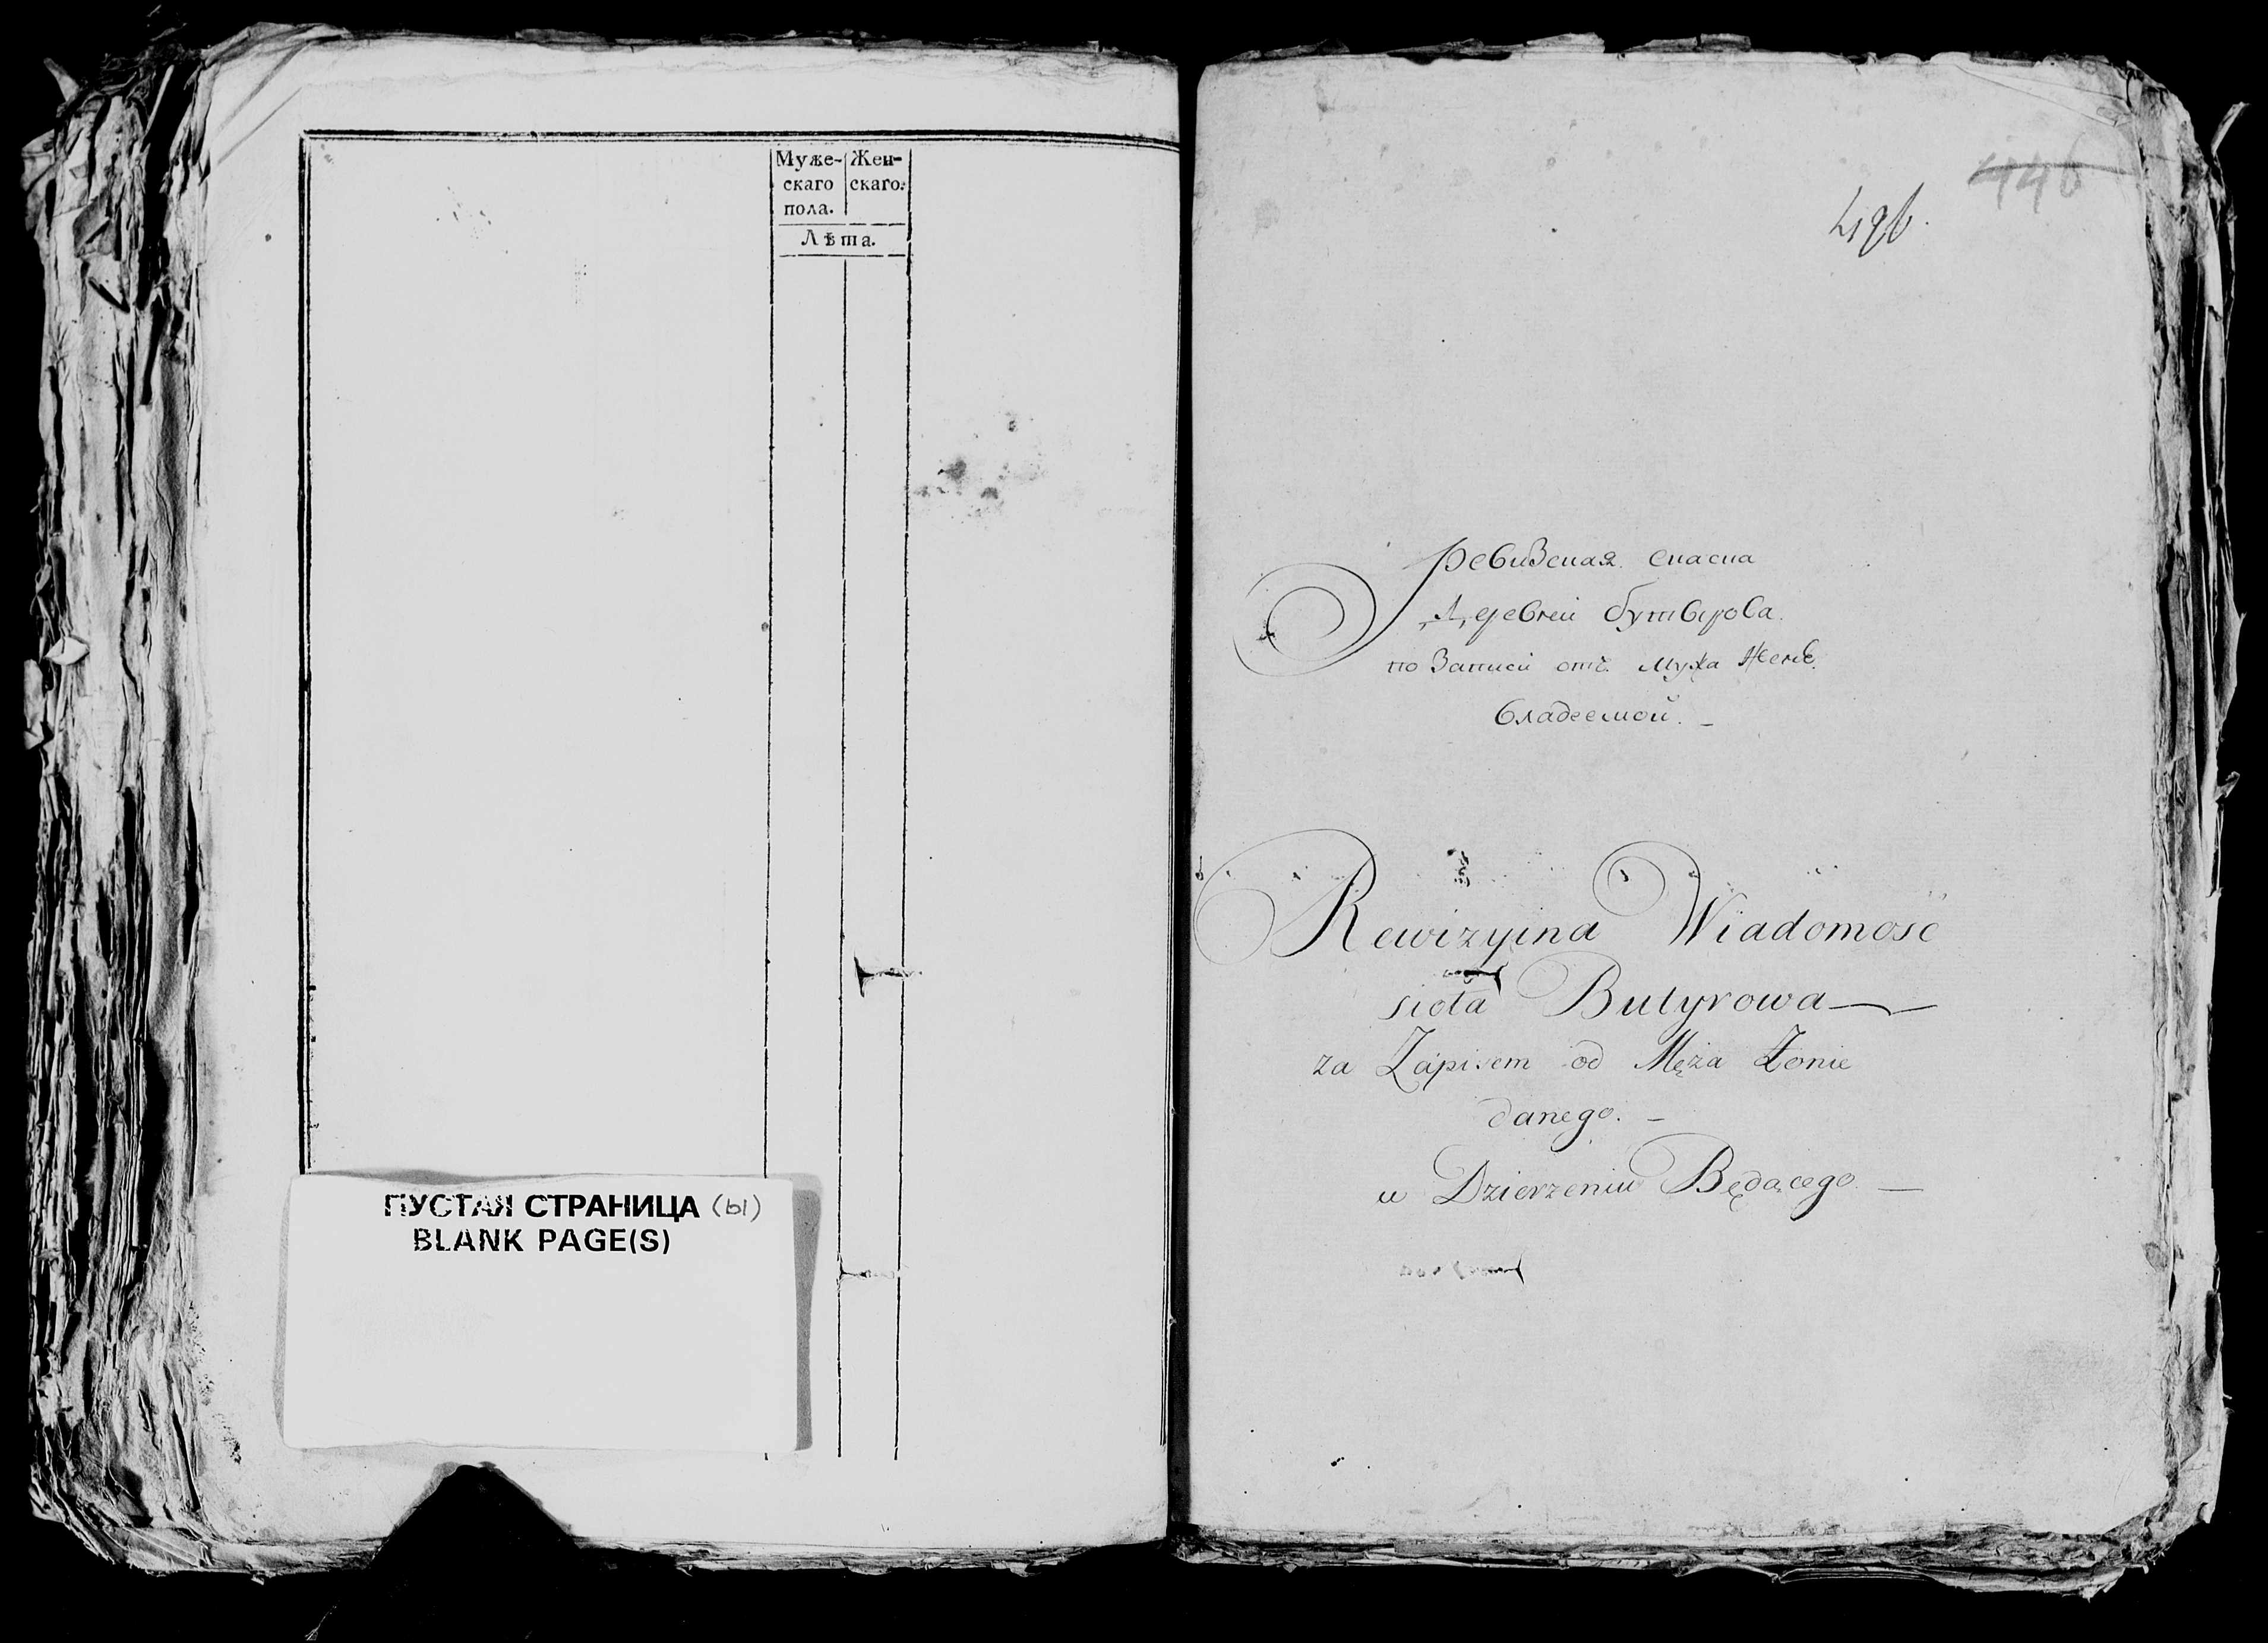 Муже- Жен-
скаго скаго.
пола.
Лѣта.
ПУСТАЯ СТРАНИЦА (ы)
BLANK PAGE(S)
446
496.
Ревизская скаска
Деревнѣи бутырова.
по Записи отъ Мужа Женѣ.
владеемой. –
Rewizyina Wiadomosć
sioła Butyrowa —
za Zapisem od Męża Żonie
danego. –
w Dzierzeniu Będącego —